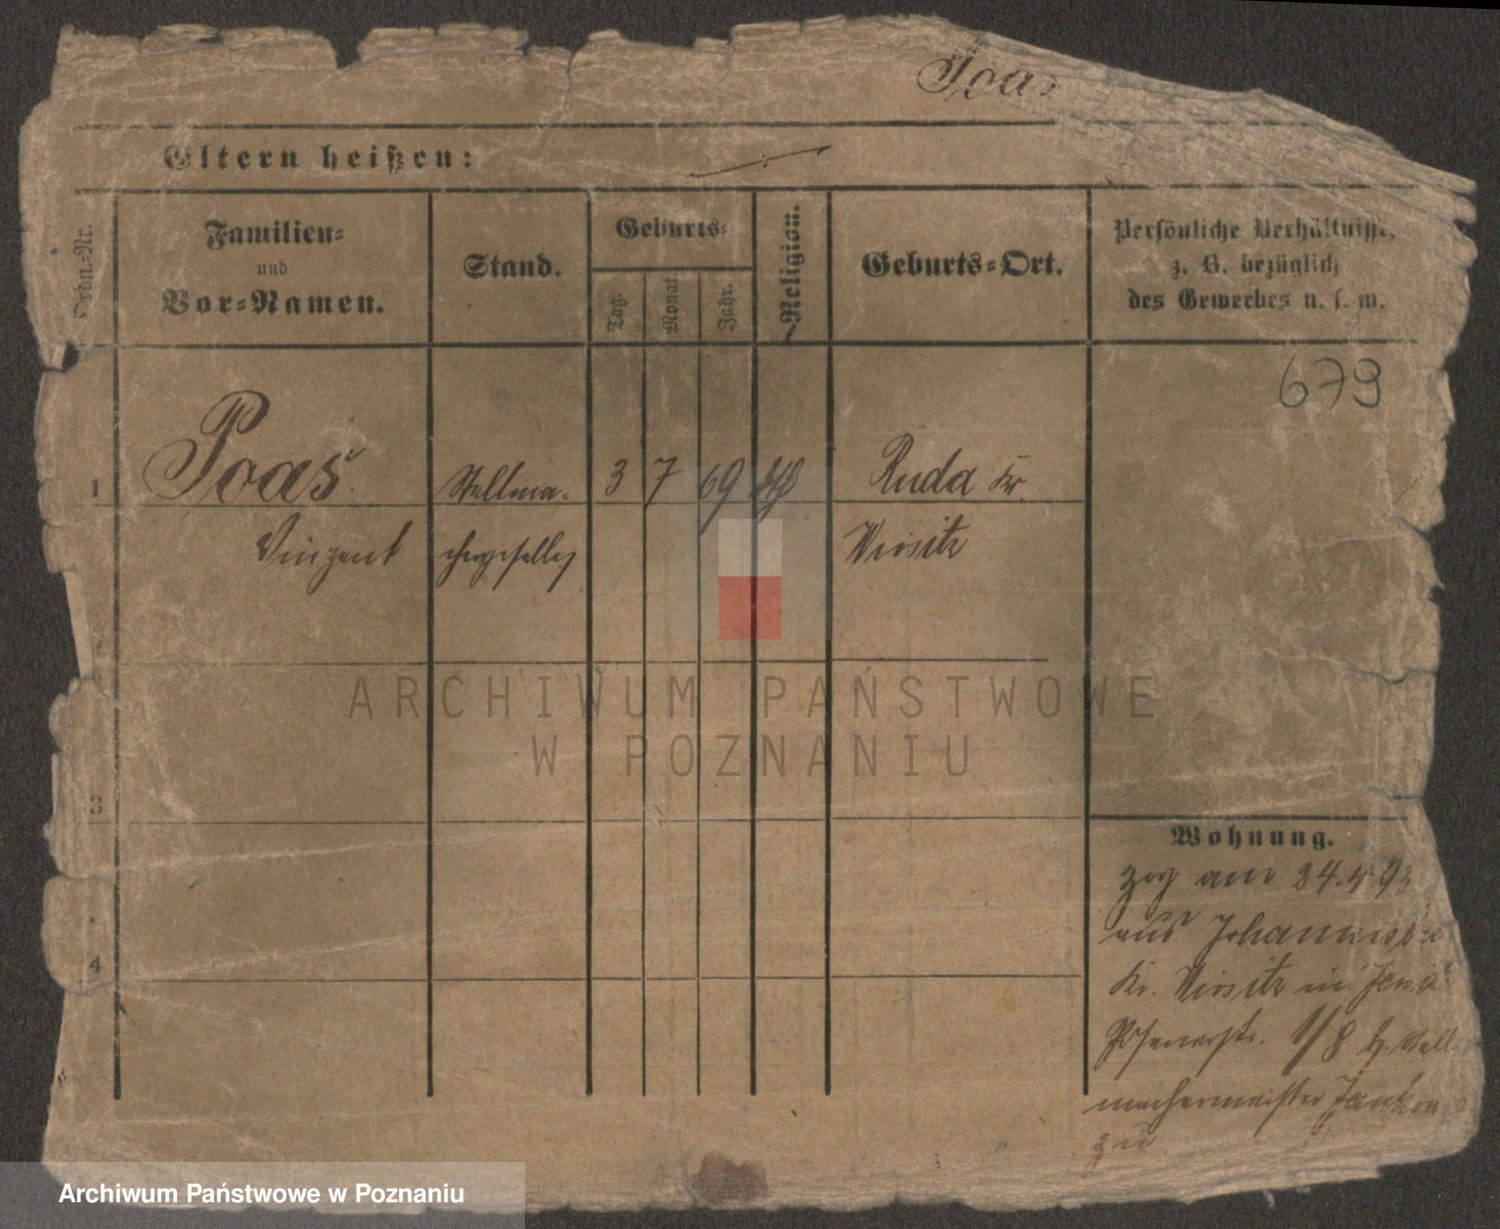 Poas
Eltern heißen:
Ordn.-Nr.
Familien-
und
Vor-Namen.
Stand.
Geburts-
Tag.
Monat
Jahr.
Religion.
Geburts-Ort.
Persönliche Verhältnisse,
z. B. bezüglich
des Gewerbes u. s. w.
679
1 Poaś Stellma- 3 7 69 kth Ruda Kr.
Vinzent chergeselle Wirsitz
3
4
Wohnung.
zog am 24.4.93
aus
Kr. Wirsitz in
Posenerstr. 1/8 b. Stell
machermeister
zu
ARCHIWUM PAŃSTWOWE
W POZNANIU
Archiwum Państwowe w Poznaniu